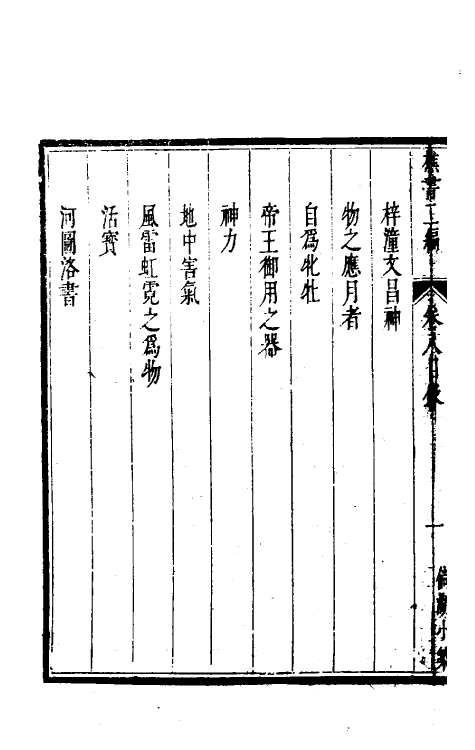 樵書二編 卷之八目錄 一
梓潼文昌神
物之應月者
自為牝牡
帝王御用之器
神力
地中害氣
風雷虹霓之為物
活寶
河圖洛書